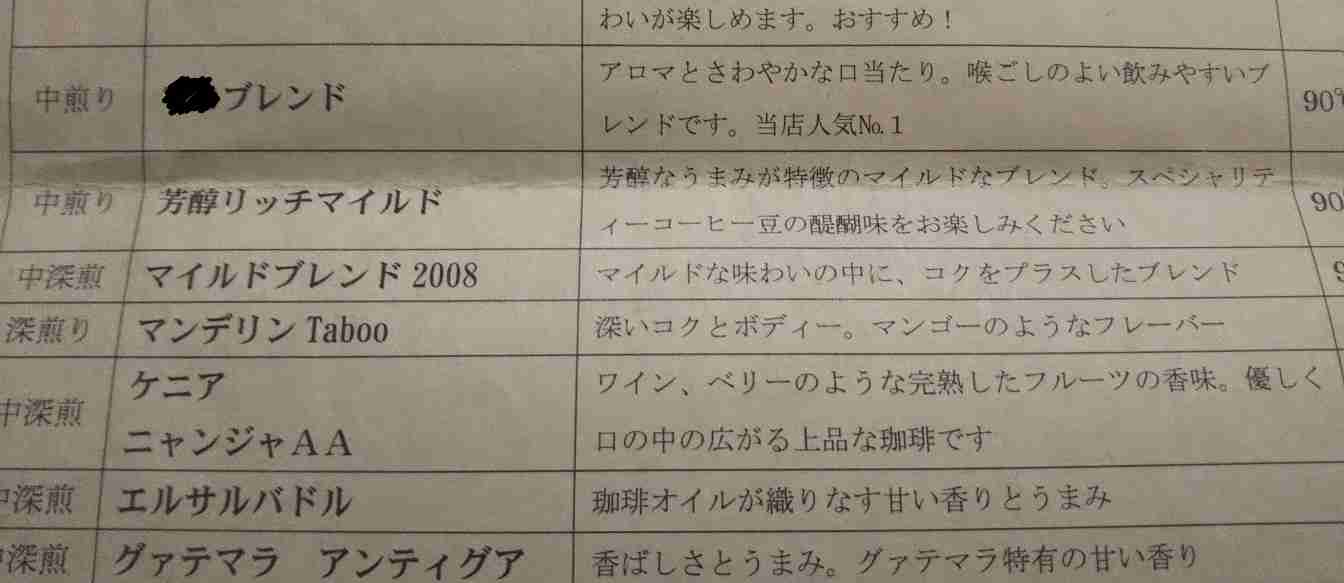 わいが楽しめます。おすすめ！
中煎り
ブレンド
アロマとさわやかな口当たり。喉ごしのよい飲みやすいブ
レンドです。当店人気№1
90℃
中煎り
芳醇リッチマイルド
芳醇なうまみが特徴のマイルドなブレンド。スペシャリテ
ィーコーヒー豆の醍醐味をお楽しみください
90
中深煎
マイルドブレンド 2008
マイルドな味わいの中に、コクをプラスしたブレンド
深煎り
マンデリン Taboo
深いコクとボディー。マンゴーのようなフレーバー
中深煎
ケニア
ニャンジャＡＡ
ワイン、ベリーのような完熟したフルーツの香味。優しく
口の中の広がる上品な珈琲です
中深煎
エルサルバドル
珈琲オイルが織りなす甘い香りとうまみ
中深煎
グァテマラ　アンティグア
香ばしさとうまみ。グァテマラ特有の甘い香り